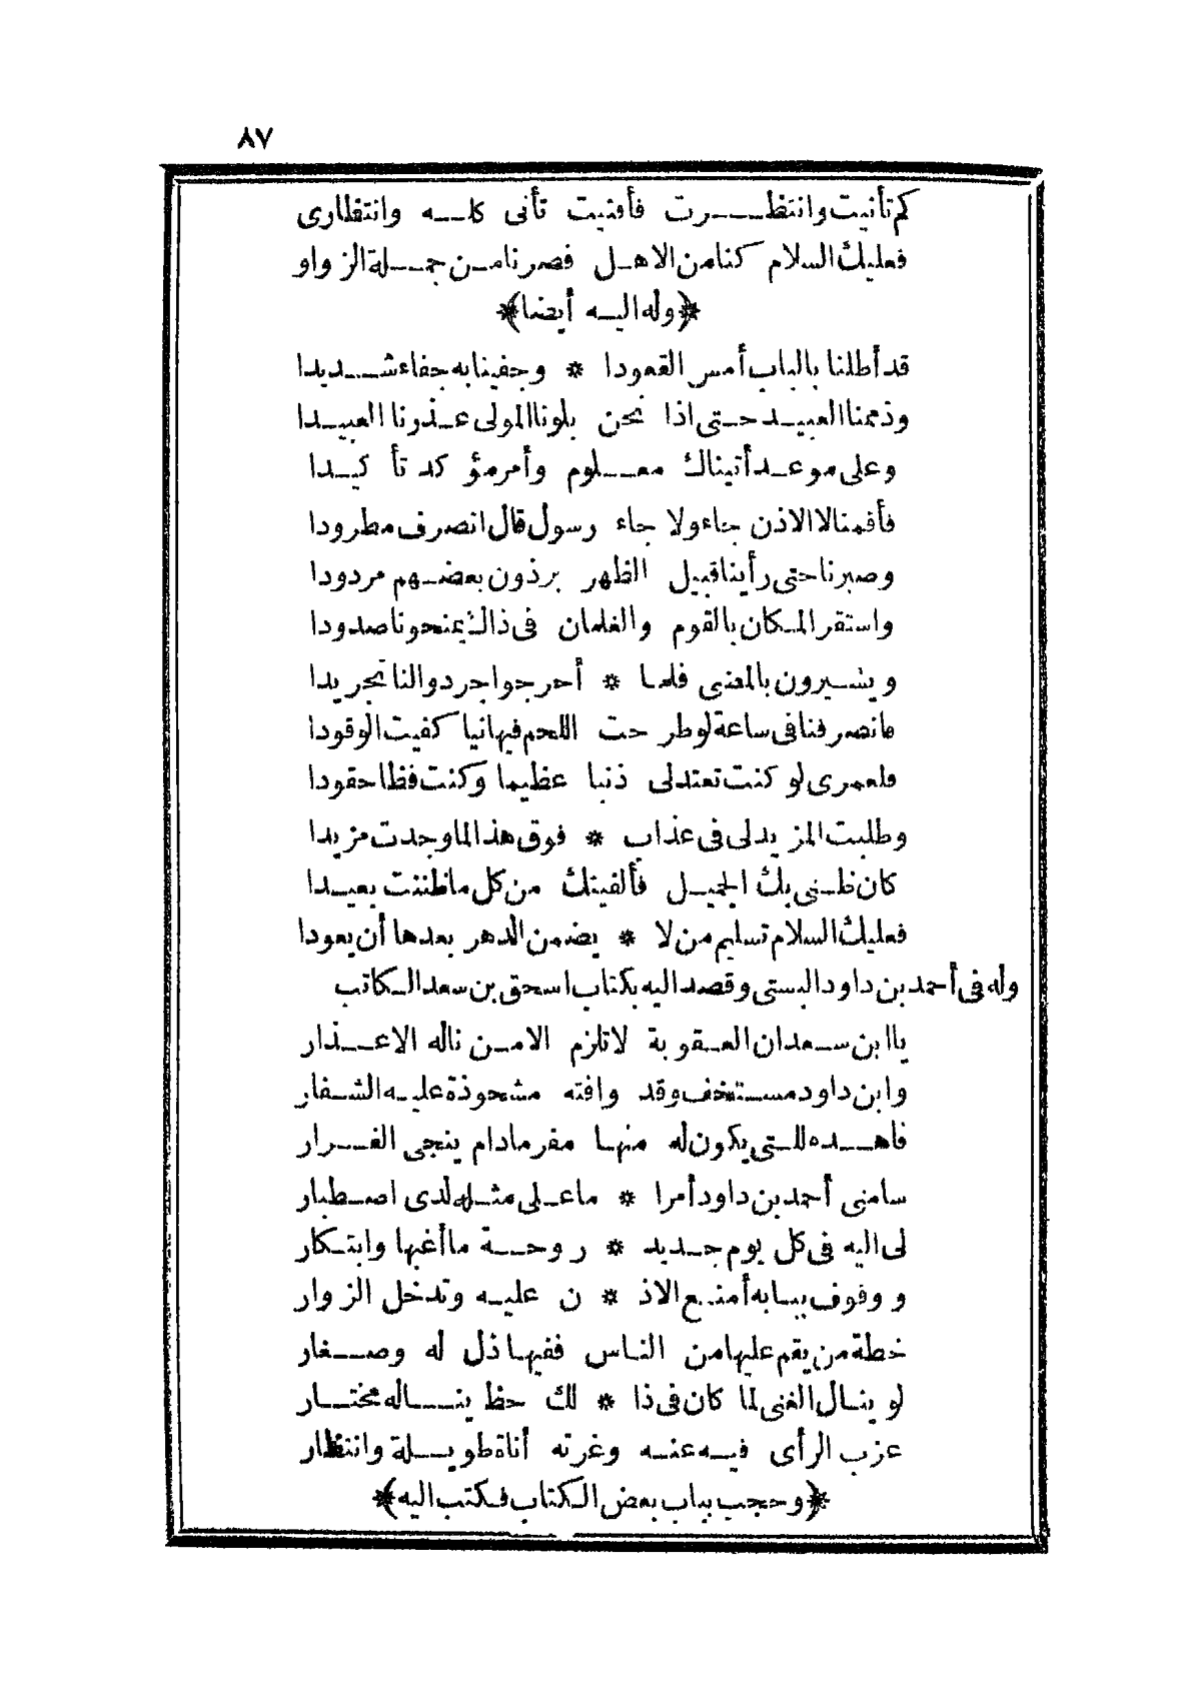 ٨٧
كم تأنيت وانتظرت فأفنيت تأنى كله وانتظارى
فعليك السلام كنا من الاهل فصرنا من جملة الزواو
﴿وله اليه أيضا﴾
قد أطلنا بالباب أمس القعودا * وجفينا به جفاء شديدا
وذممنا العبيد حتى اذا نحن بلونا المولى عذرنا العبيدا
وعلى موعد أتيناك معلوم وأمر مؤكد تأكيدا
فأقمنا لا الاذن جاء ولا جاء رسول قال انصرف مطرودا
وصبرنا حتى رأينا قبيل الظهر برذون بعضهم مردودا
واستقر المكان بالقوم والغلمان فى ذاك يمنحونا صدودا
ويشيرون بالمضى فلما * أحرجوا جردوا لنا تجريدا
فانصرفنا فى ساعة لو طرحت اللحم فيها نيا كفيت الوقودا
فلعمرى لو كنت تعتد لى ذنبا عظيما وكنت فظا حقودا
وطلبت المزيد لى فى عذاب * فوق هذا لما وجدت مزيدا
كان ظنى بك الجميل فألفيتك من كل ما ظننت بعيدا
فعليك السلام تسليم من لا * يضمن الدهر بعدها أن يعودا
وله فى أحمد بن داود البستى وقصد اليه بكتاب اسحق بن سعد الكاتب
يا ابن سعد ان العقوبة لا تلزم الا من ناله الاعذار
وابن داود مستخف وقد وافته مشحوذة عليه الشفار
فاهده للتى يكون له منها مفر مادام ينجى الفرار
سامنى أحمد بن داود أمرا * ما على مثله لدى اصطبار
لى اليه فى كل يوم جديد * روحة ما أغبها وابتكار
ووقوف ببابه أمنع الاذ * ن عليه وتدخل الزوار
خطة من يقم عليها من الناس ففيها ذل له وصغار
لو ينال الغنى لما كان فى ذا * لك حظ يناله مختار
عزب الرأى فيه عنه وغرته أناة طويلة وانتظار
﴿وحجب بباب بعض الكتاب فكتب اليه﴾